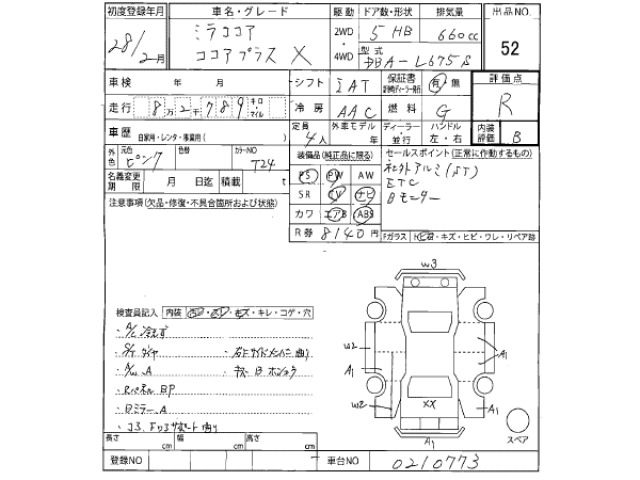 初度登録年月 車名・グレード 駆動 ドア数・形状 排気量 出品NO
28/2月 ミラココア ココアプラス X 2WD 4WD 5 HB 660cc 52
型式 DBA-L675S
車検 年 月 シフト IAT 保証書 有・無 評価点
走行 8万2千789キロ・マイル 冷房 AAC 燃料 G R
車歴 自家用・レンタ・事業用( ) 定員 4人 外車モデル 年 ディーラー・並行 ハンドル 左・右 内装評価 B
外色 元色 ピンク 色替 カラーNO T24 装備品(純正品に限る) セールスポイント(正常に作動するもの)
名義変更期限 月 日迄 積載 t PS PW AW 社外アルミ(ST)
注意事項(欠品・修復・不具合箇所および状態) SR TV ナビ ETC
カワ エアB ABS Bモニター
R券 8140円 Fガラス ヒビ・キズ・ヒビ・ワレ・リペア跡
W3
検査員記入 内装 ・キレ・コゲ・穴
・A/C冷えず
・S/Tダイヤ
・A/W A
・RパネルBP
・Dミラー A
W2
A1
A1
W2
XX
A1
A1
スペア
長さ cm 幅 cm 高さ cm
登録NO 車台NO 0210773